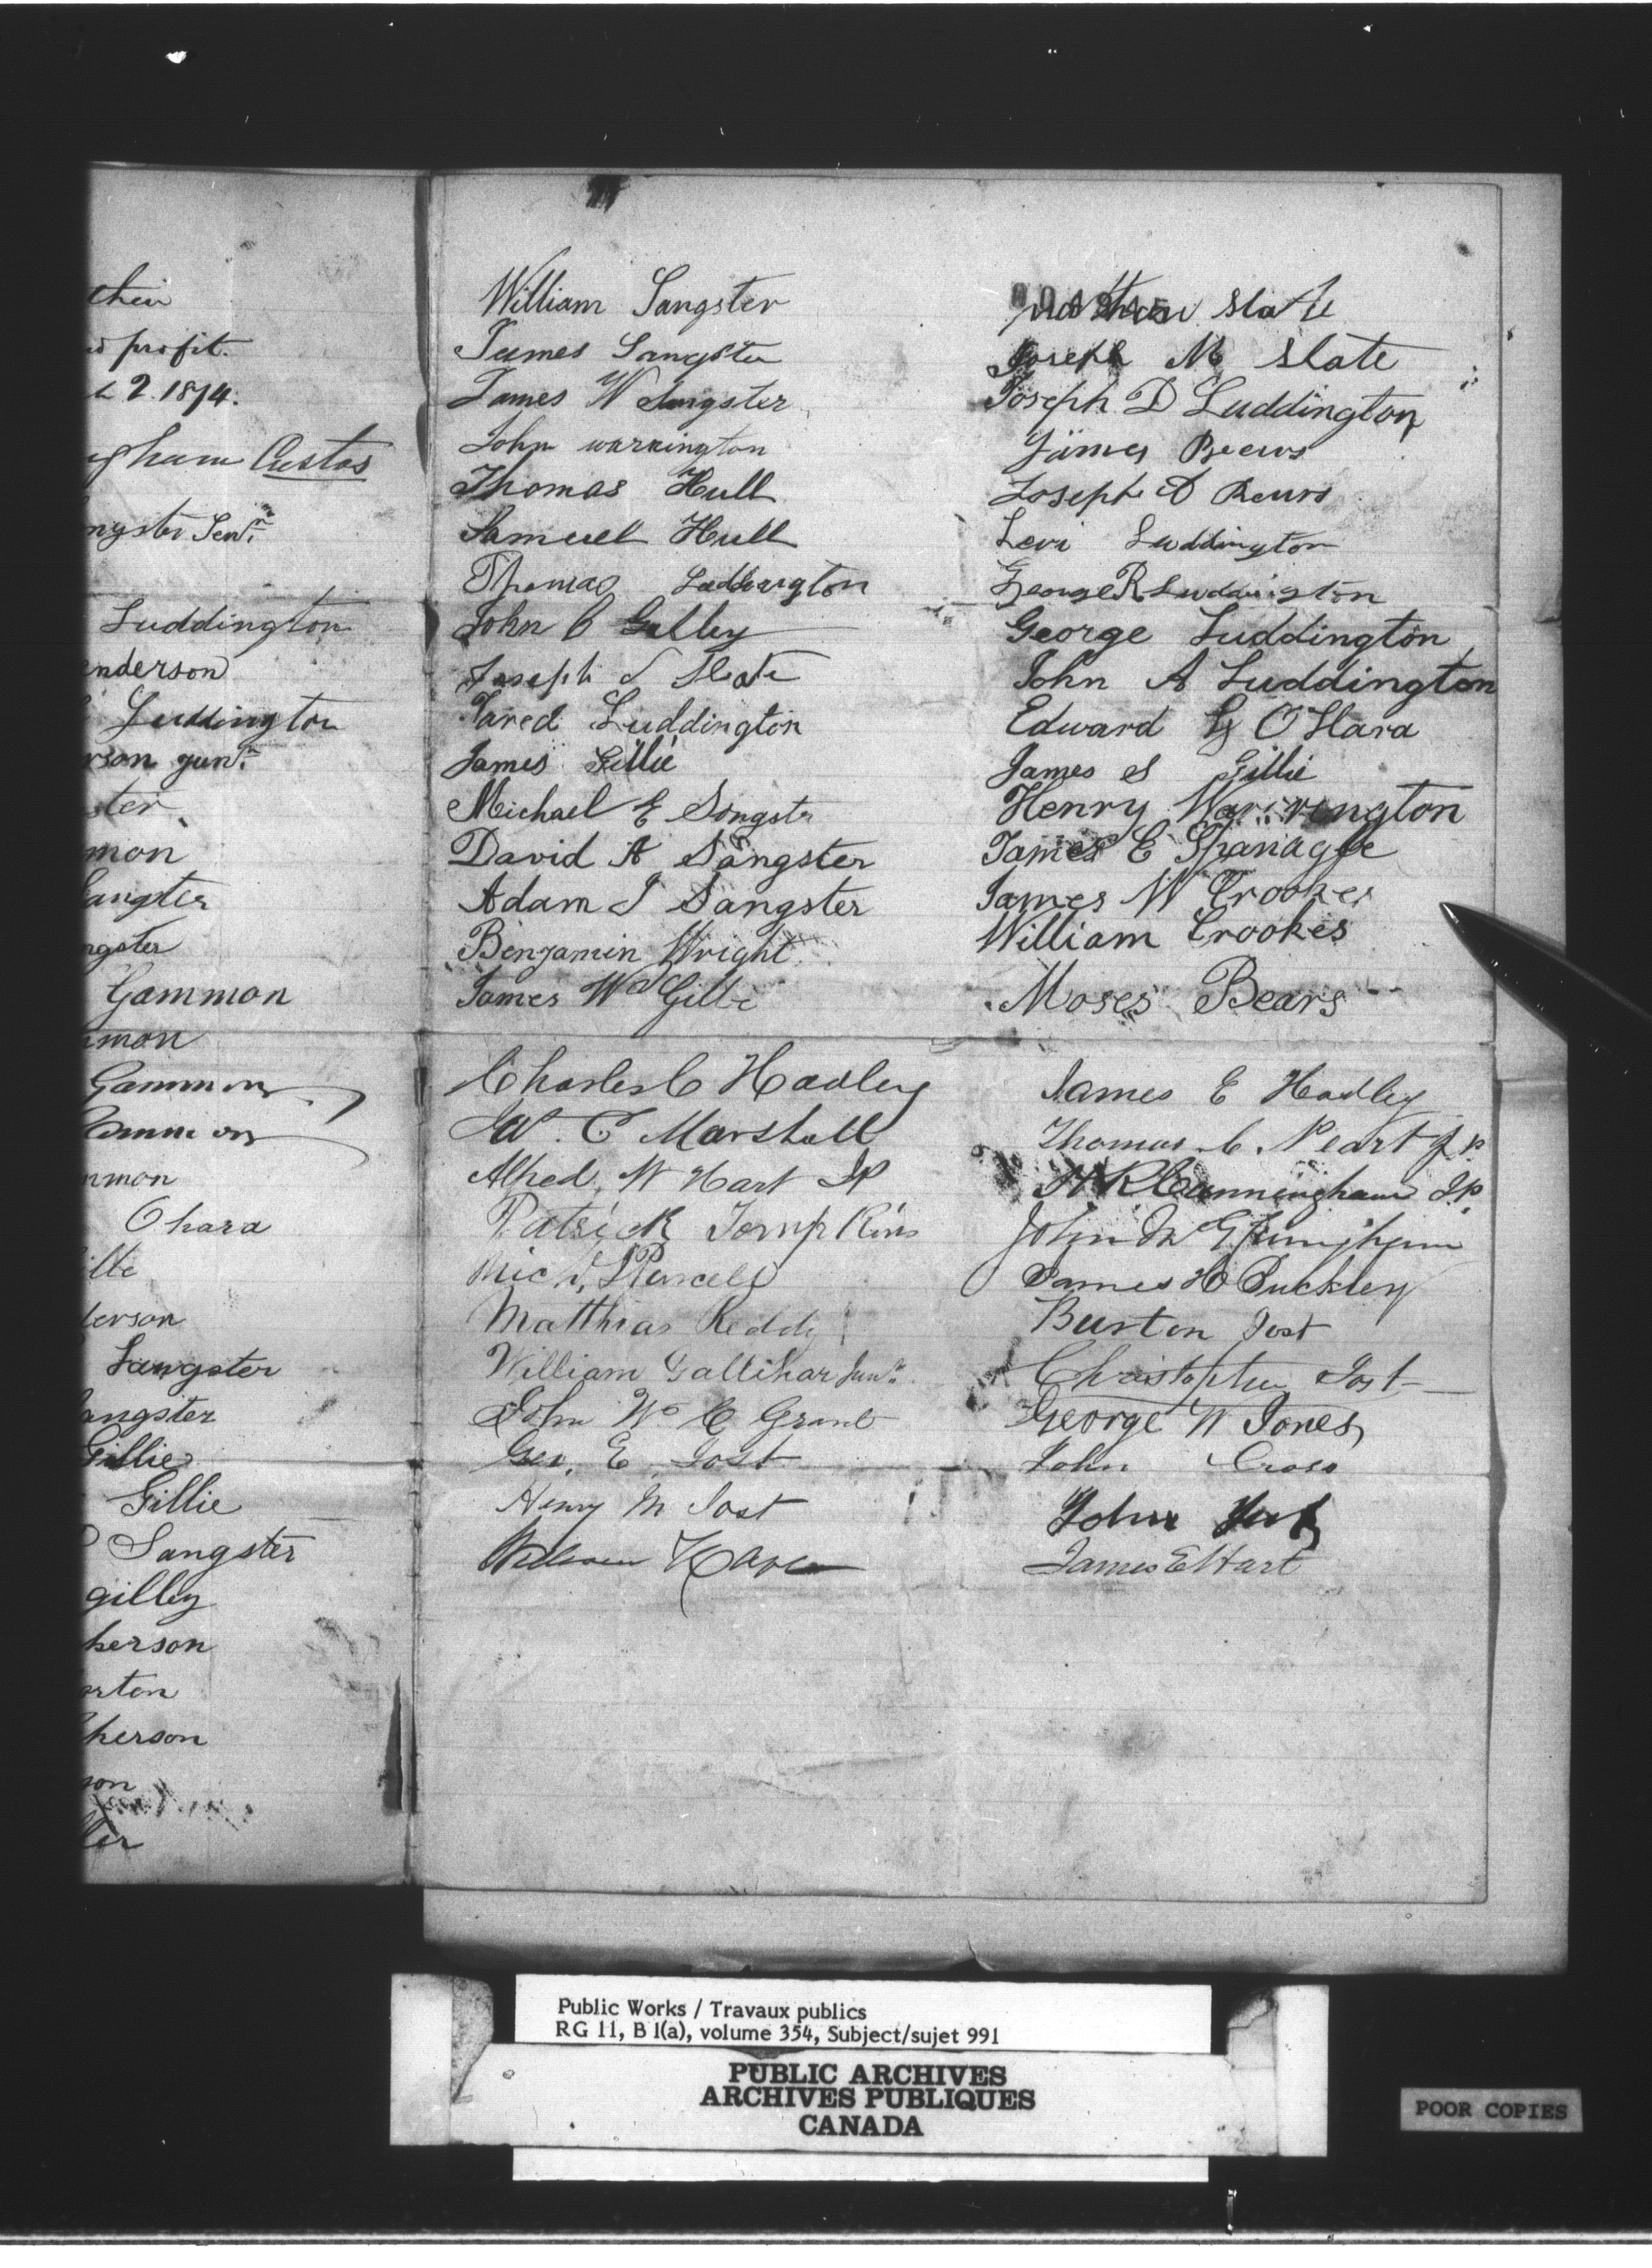 their
profit.
2. 1874.
gham Custos
ngster Senr.
Luddington
enderson
Luddington
rson junr.
ster
mon
angster
ngster
Gammon
mmon
Gammon
ammon
mmon
Ohara
illie
derson
Sangster
angster
Gillie
Gillie
Sangster
gilley
herson
orton
herson
son
ller
William Sangster
James Sangster
James W Sangster
John warrington
Thomas Hull
Samuell Hull
Thomas Luddington
John C Gilley
Joseph J Slate
Jared Luddington
James Gillie
Michael E Sangster
David A Sangster
Adam J Sangster
Benjamin Wright
James W Gillie
Charles C Hadley
W. C Marshall
Alfred W Hart JP
Patrick Tompkins
Mich. Purcell
Matthias Reddy
William Gallihar Junr.
John Wm C Grant
Geo. E Jost
Henry M Jost
William
Slate
Joseph M Slate
Joseph D Luddington
James Beews
Joseph A
Levi Luddington
George R Luddington
George Luddington
John A Luddington
Edward G O'Hara
James S Gillie
Henry Warrington
James E
James W Crookes
William Crookes
Moses Bears
James E Hadley
Thomas C. Peart J P
H R Cunningham J.P.
John M
James H Buckley
Burton Jost
Christopher Jost
George W Jones
John Cross
John
James E Hart
Public Works / Travaux publics
RG 11, B 1(a), volume 354, Subject/sujet 991
PUBLIC ARCHIVES
ARCHIVES PUBLIQUES
CANADA
POOR COPIES